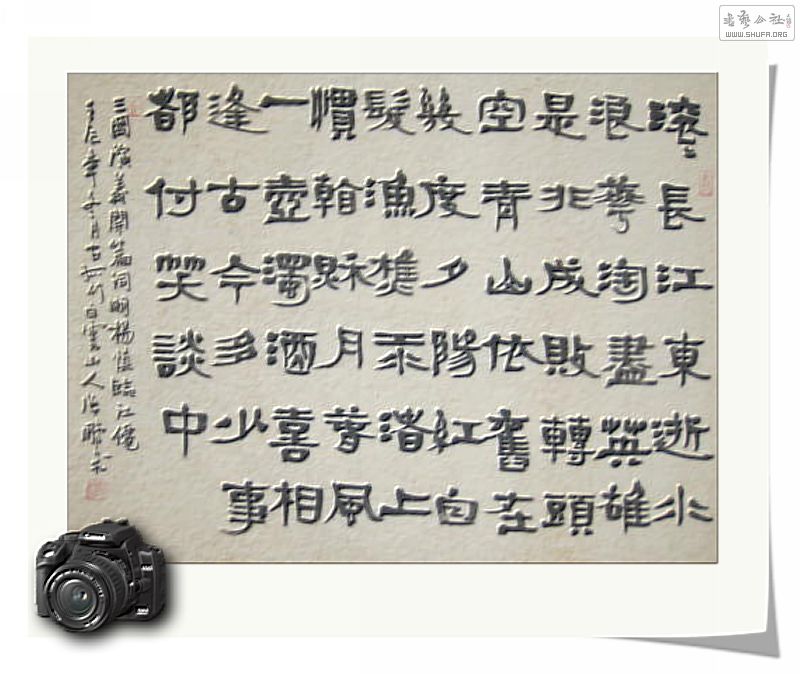 滚〻長江東逝水
浪華淘盡英雄
是非成敗轉頭
空青山依舊在
幾度夕陽紅白
髮漁樵渚上
慣看秋月春風
一壺濁酒喜相
逢古今多少事
都付笑談中
三國演義開篇词明楊慎臨江僊
年月古杭白雲山人
书艺公社
WWW.SHUFA.ORG
Canon